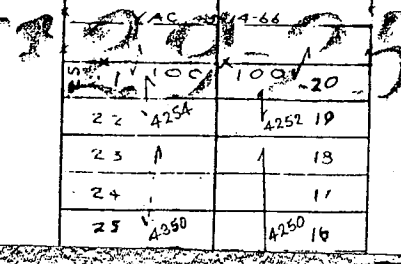 100 100 20
22 4254 4252 19
23 18
24 17
25 4350 4250 16